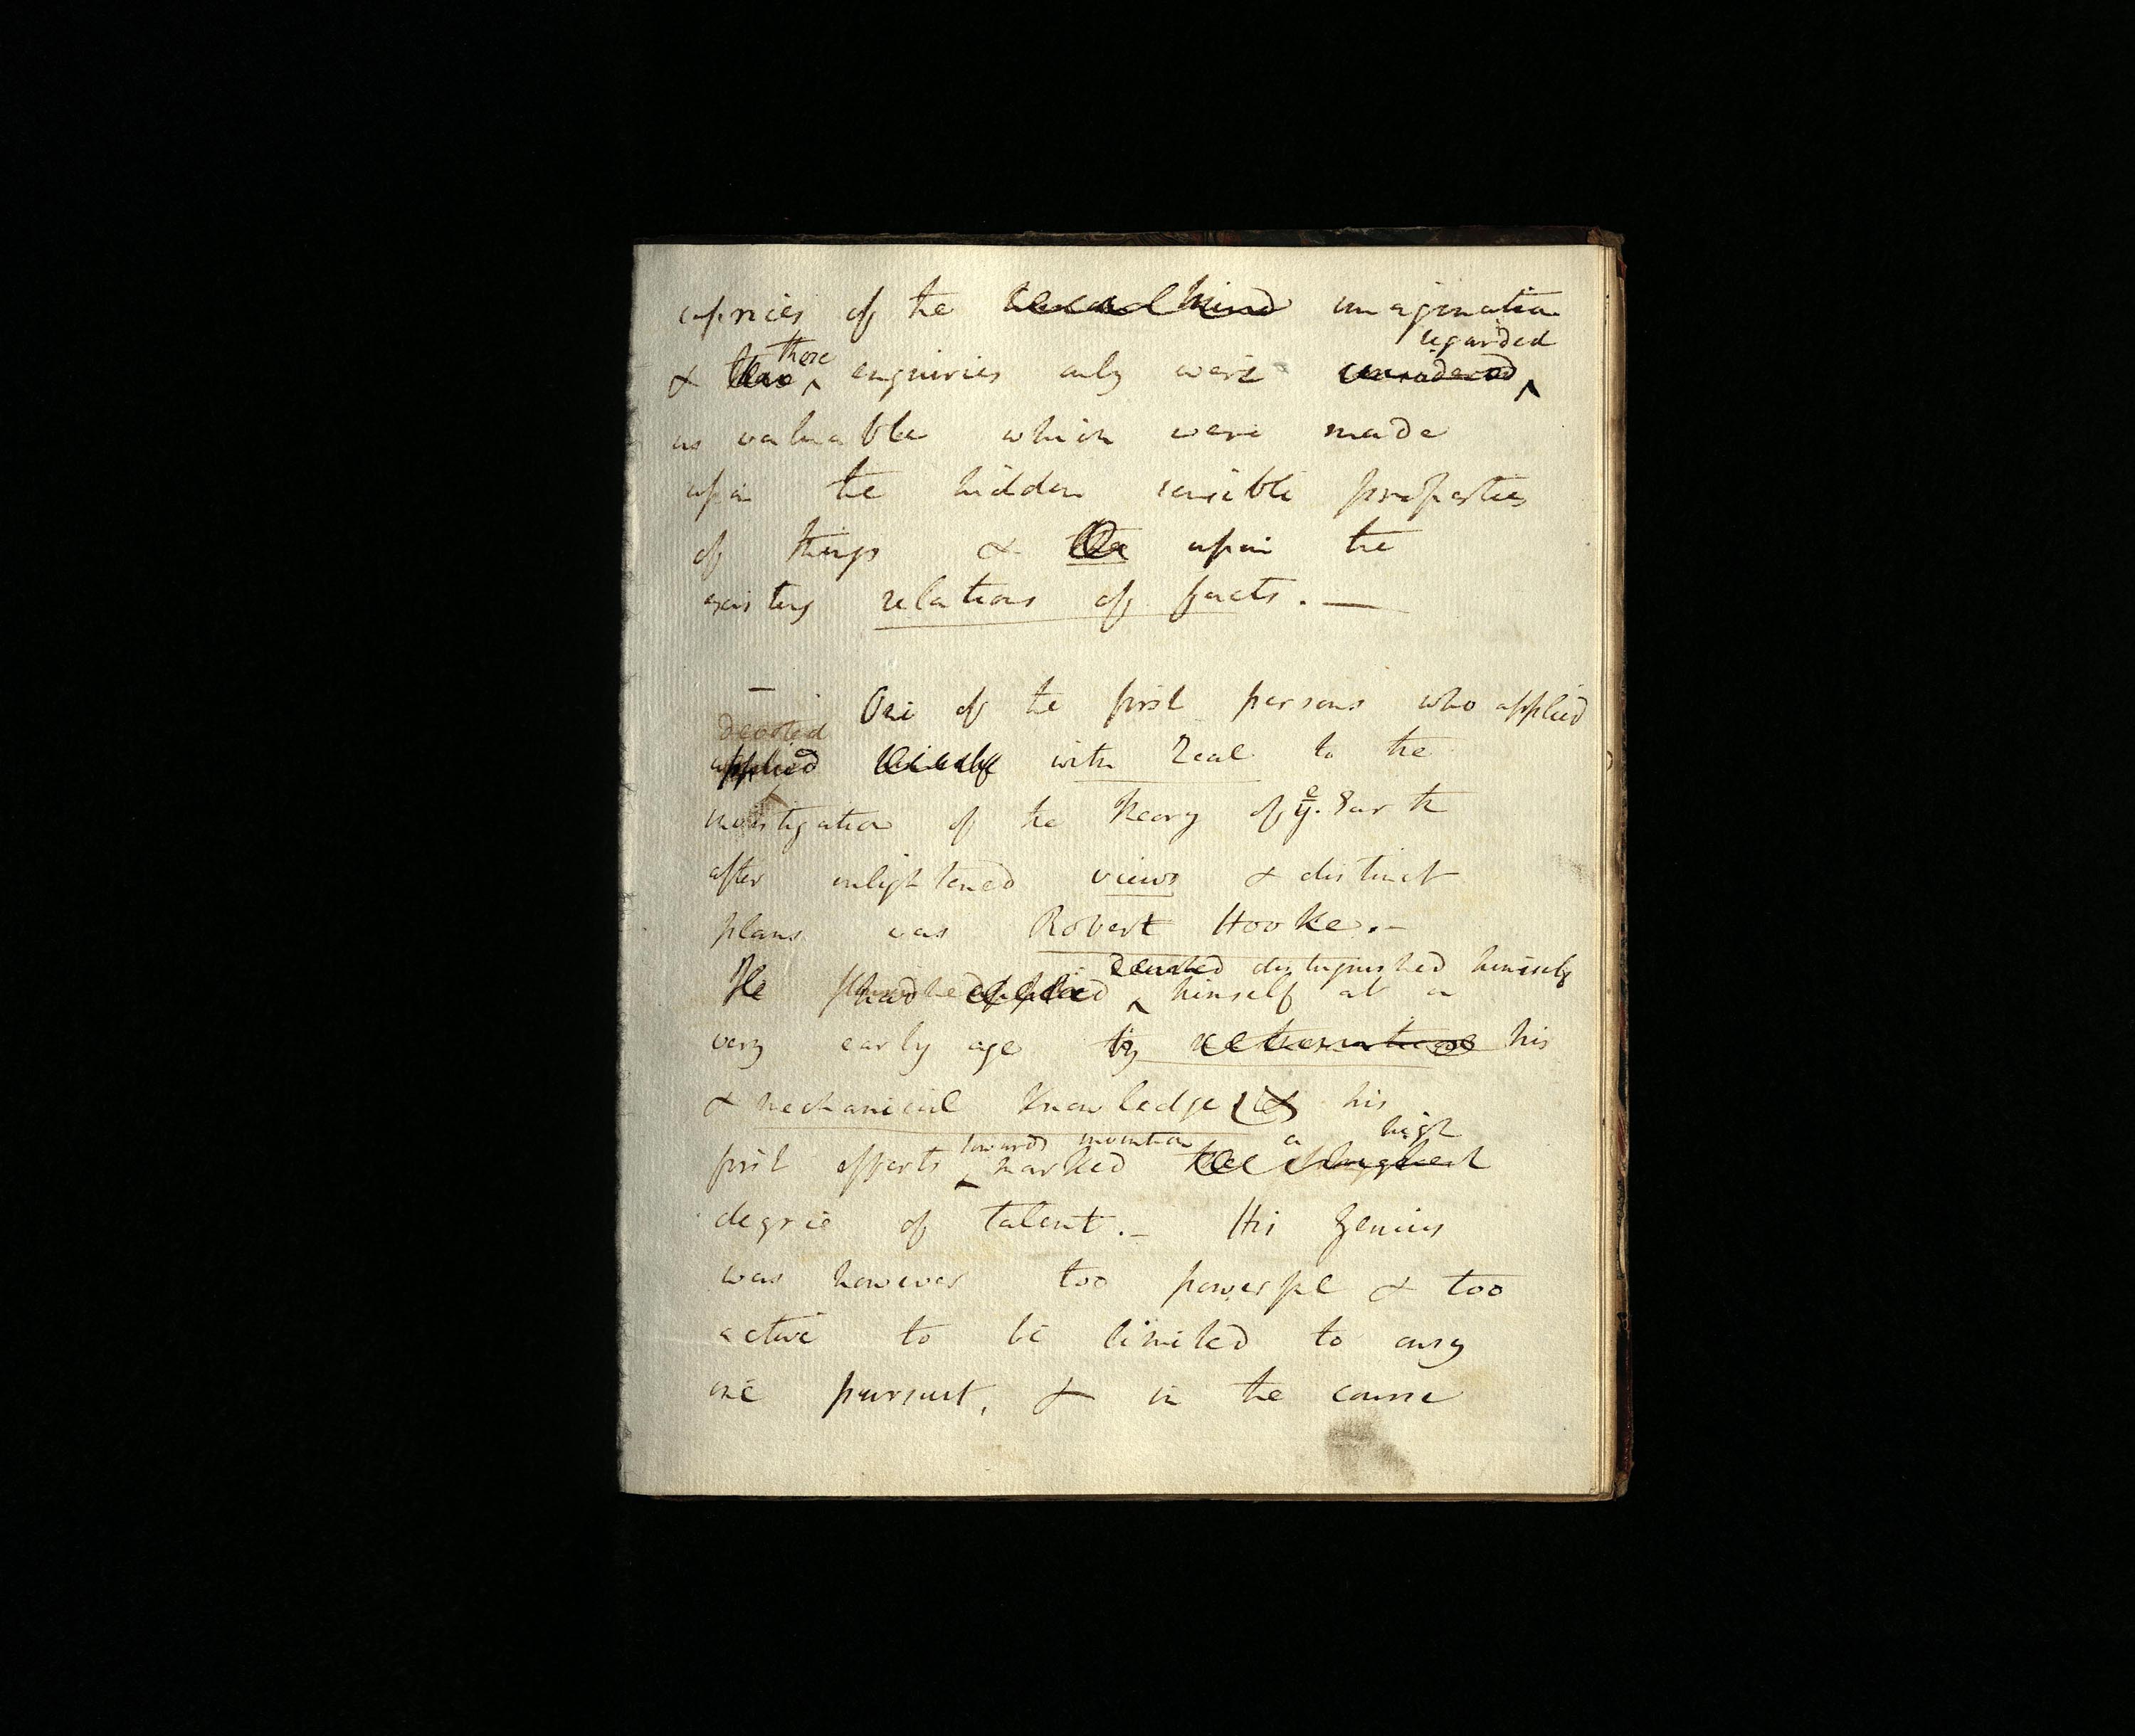 caprices of the human mind imagination
regarded
those
& these enquiries only were considered
as valuable which were made
upon the hidden sensible properties
of things & the upon the
existing relations of facts. —
— One of the first persons who applied
devoted
applied himself with Zeal to the
investigation of the Theory of ye. Earth
after enlightened views & distinct
plans was Robert Hooke. —
devoted distinguished himself
He had applied himself at a
very early age by his
& mechanical Knowledge & his
towards invention a high
first efforts marked the highest
degree of talent. — His Genius
was however too powerful & too
active to be limited to any
one pursuit, & in the course